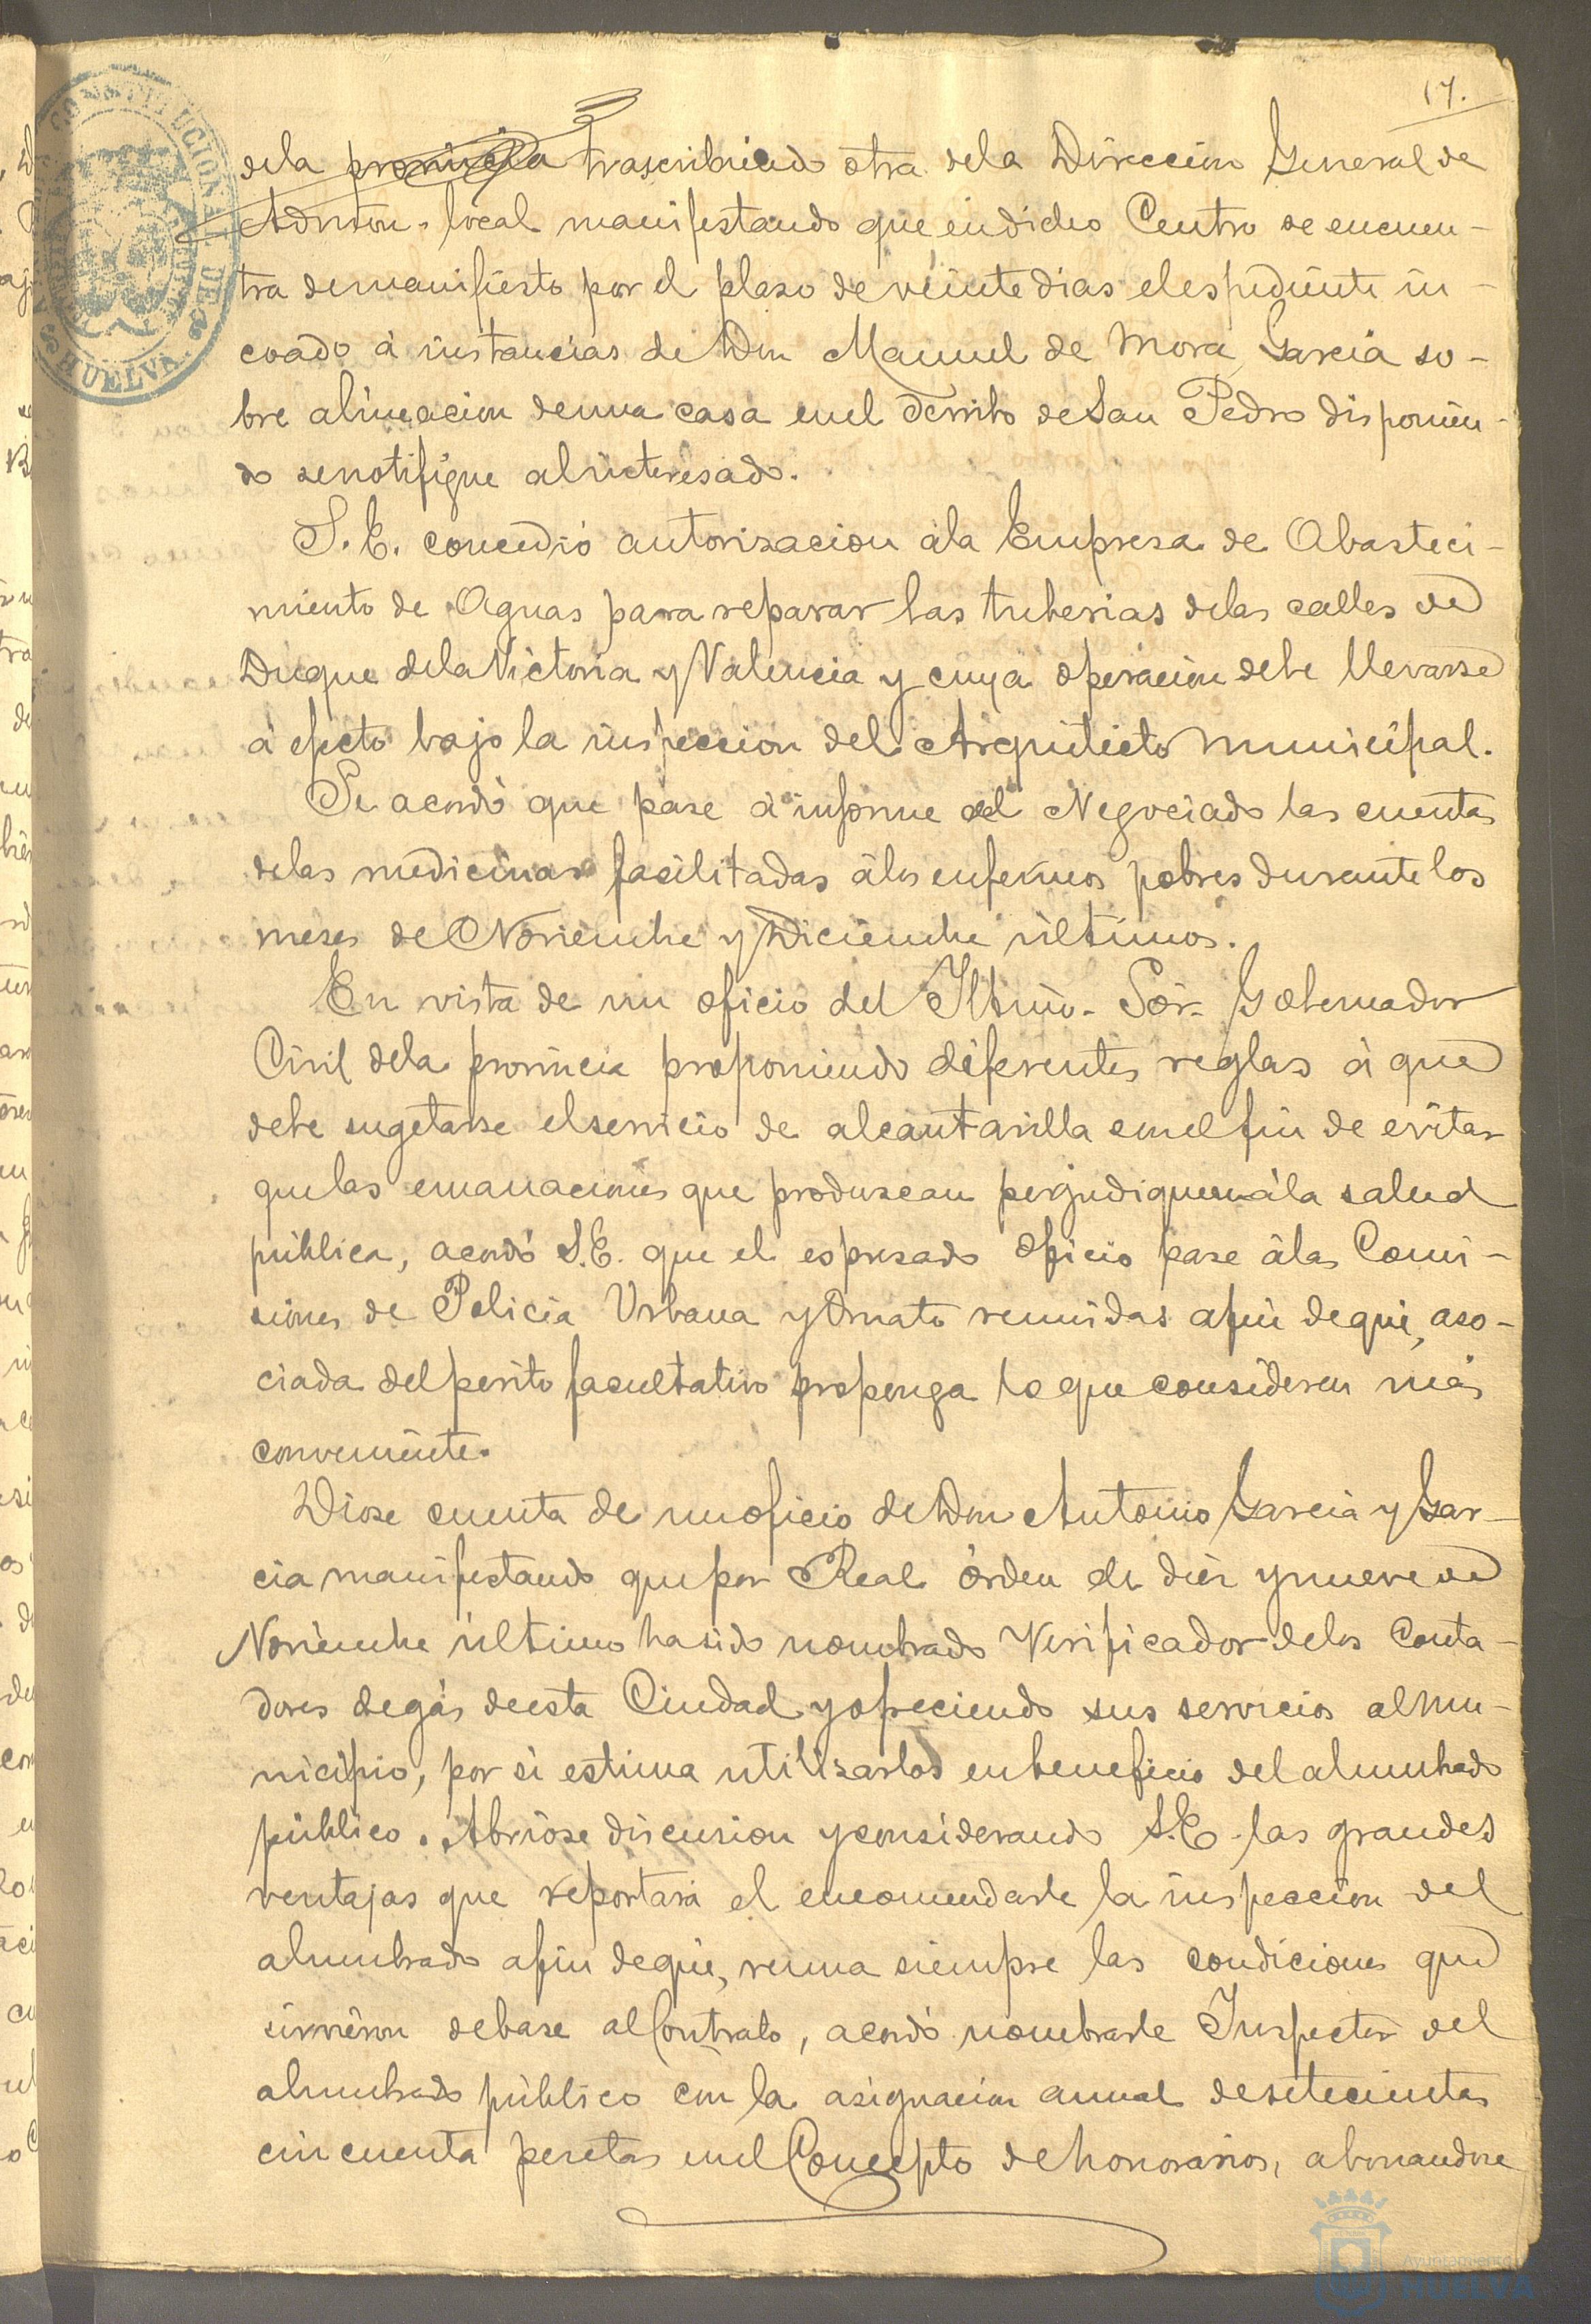 17.
dela provincia trascribiendo otra dela Direccion General de
Admon. local manifestando que, en dicho Centro se encuen-
tra de manifiesto por el plaso de veinte dias el espediente in-
coado á instancias de Don Manuel de Mora Garcia so-
bre alineacion de una casa en el Derribo de San Pedro disponien-
do se notifique al interesado.
S. E. concedió autorisacion ála Empresa de Abasteci-
miento de Aguas para reparar las tuberias delas calles de
Duque dela Victoria y Valencia y cuya operacion debe llevarse
á efecto bajo la inspeccion del Arquitecto municipal.
Se acordó que pase á informe del Negociado las cuentas
delas medicinas facilitadas álos enfermos pobres durante los
meses de Noviembre y Diciembre últimos.
En vista de un oficio del Iltmo. Sor. Gobernador
Civil dela provincia proponiendo diferentes reglas á que
debe sugetarse el servicio de alcantarilla con el fin de evitar
que las emanaciones que produscan perjudiquen ála salud
pública, acordó S.E. que el espresado oficio pase álas Comi-
siones de Policia Urbana y Ornato reunidas afin de que, aso-
ciada del perito facultativo proponga lo que consideren más
conveniente.
Diose cuenta de un oficio de Don Antonio Garcia y Gar-
cia manifestando que por Real órden de diez y nueve de
Noviembre último ha sido nombrado Verificador delos Conta-
dores de gás de esta Ciudad y ofreciendo sus servicios al Mu-
nicipio, por si estima utilisarlos en beneficio del alumbrado
público. Abriose discusion y considerando S.E. las grandes
ventajas que reportará el encomendarle la inspeccion del
alumbrado afin de que, reuna siempre las condiciones que
sirvieron de base al Contrato, acordó nombrarle Inspector del
alumbrado público con la asignacion anual de setecientas
cincuenta pesetas en el Concepto de honorarios, abonandose
CONSTITUCIONAL DE
HUELVA
Ayuntamiento
HUELVA